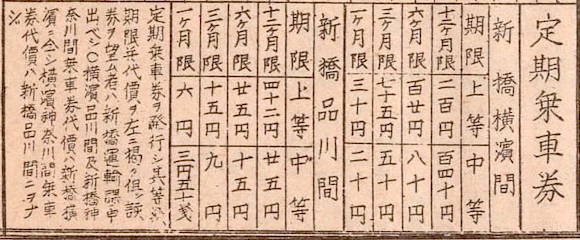 定期乗車券
新橋横濱間
期限 上等 中等
十二ヶ月限 二百円 百四十円
六ヶ月限 百廿円 八十円
三ヶ月限 七十五円 五十円
一ヶ月限 三十円 二十円
新橋品川間
期限 上等 中等
十二ヶ月限 四十二円 廿五円
六ヶ月限 廿五円 十五円
三ヶ月限 十五円 九円
一ヶ月限 六円 三円五十戔
定期乗車券ヲ発行シ其等級
期限并代價ヲ左ニ掲ク但シ該
券ヲ望ム者ハ新橋運輸課ヘ申
出ベシ〇横濱品川間及新橋神
奈川間乗車券代價ハ新橋横
濱ニ仝シ横濱神奈川間乗車
券代價ハ新橋品川間ニヲナ
※